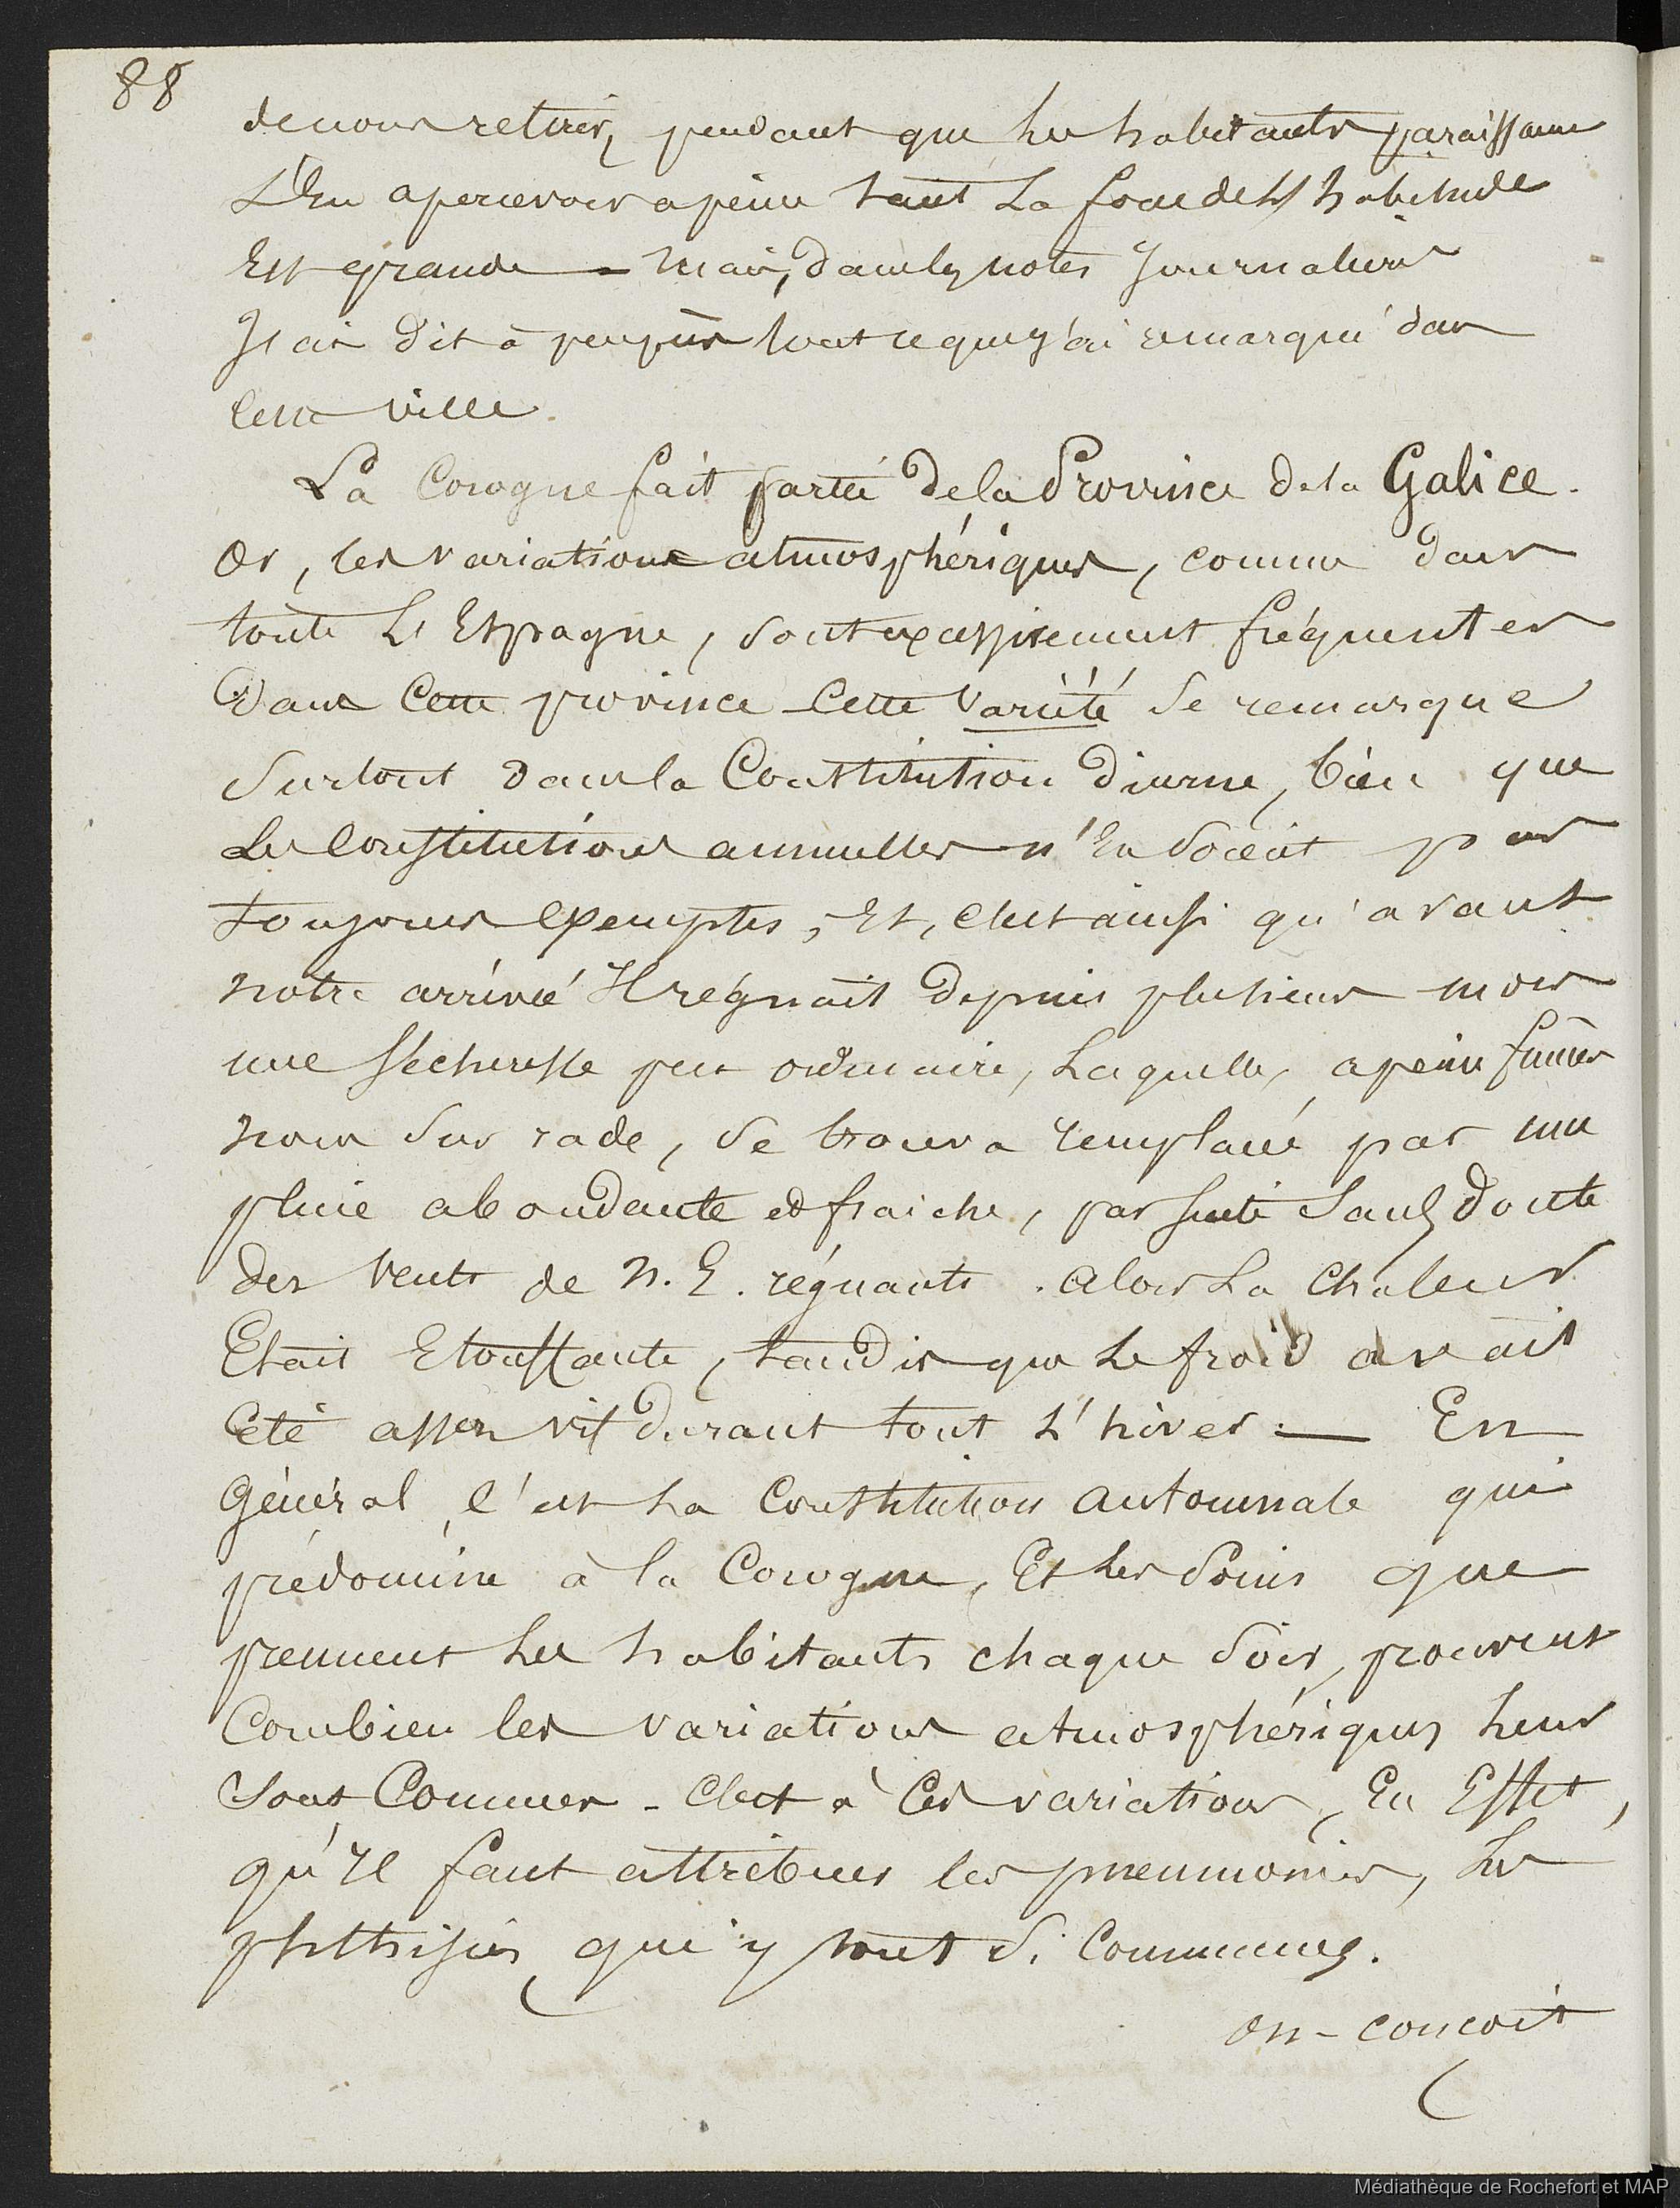 88
de nous retirer, pendant que les habitants paraissaient
s'en apercevoir apeine tant la force de l'habitude
Est grande – mais, dans les notes Journalières
J'ai dit à peu près tout ce que j'ai remarqué dans
cette ville.
La Corogne fait partie de la Province de la Galice.
Or, les variations atmosphériques, comme dans
toute L'Espagne, sont excessivement fréquentes
Dans Cette province Cette Variété se remarque
surtout dans la Constitution diurne, bien que
les Constitutions annuelles n'En soient pas
toujours exemptes, Et, c'est ainsi qu'avant
notre arrivée Il régnait depuis plusieurs mois
une sécheresse peu ordinaire, laquelle, apeine fumes
nous sur rade, se trouva remplacée par une
pluie abondante et fraiche, par suite sans doute
des vents de N.E. régnants. Alors la chaleur
Etait Etouffante, tandis que le froid avait
Eté assez vif durant tout l'hiver. — En
Général, c'est la Constitution automnale qui
prédomine à la Corogne, Et les soins que
prennent les habitants chaque soir, prouvent
Combien les variations atmosphériques leur
sont Connues – C'est à Ces variations, En Effet,
qu'il faut attribuer les pneumonies, les
phthisies qui y sont si Communes.
on-concoit
Médiathèque de Rochefort et MAP